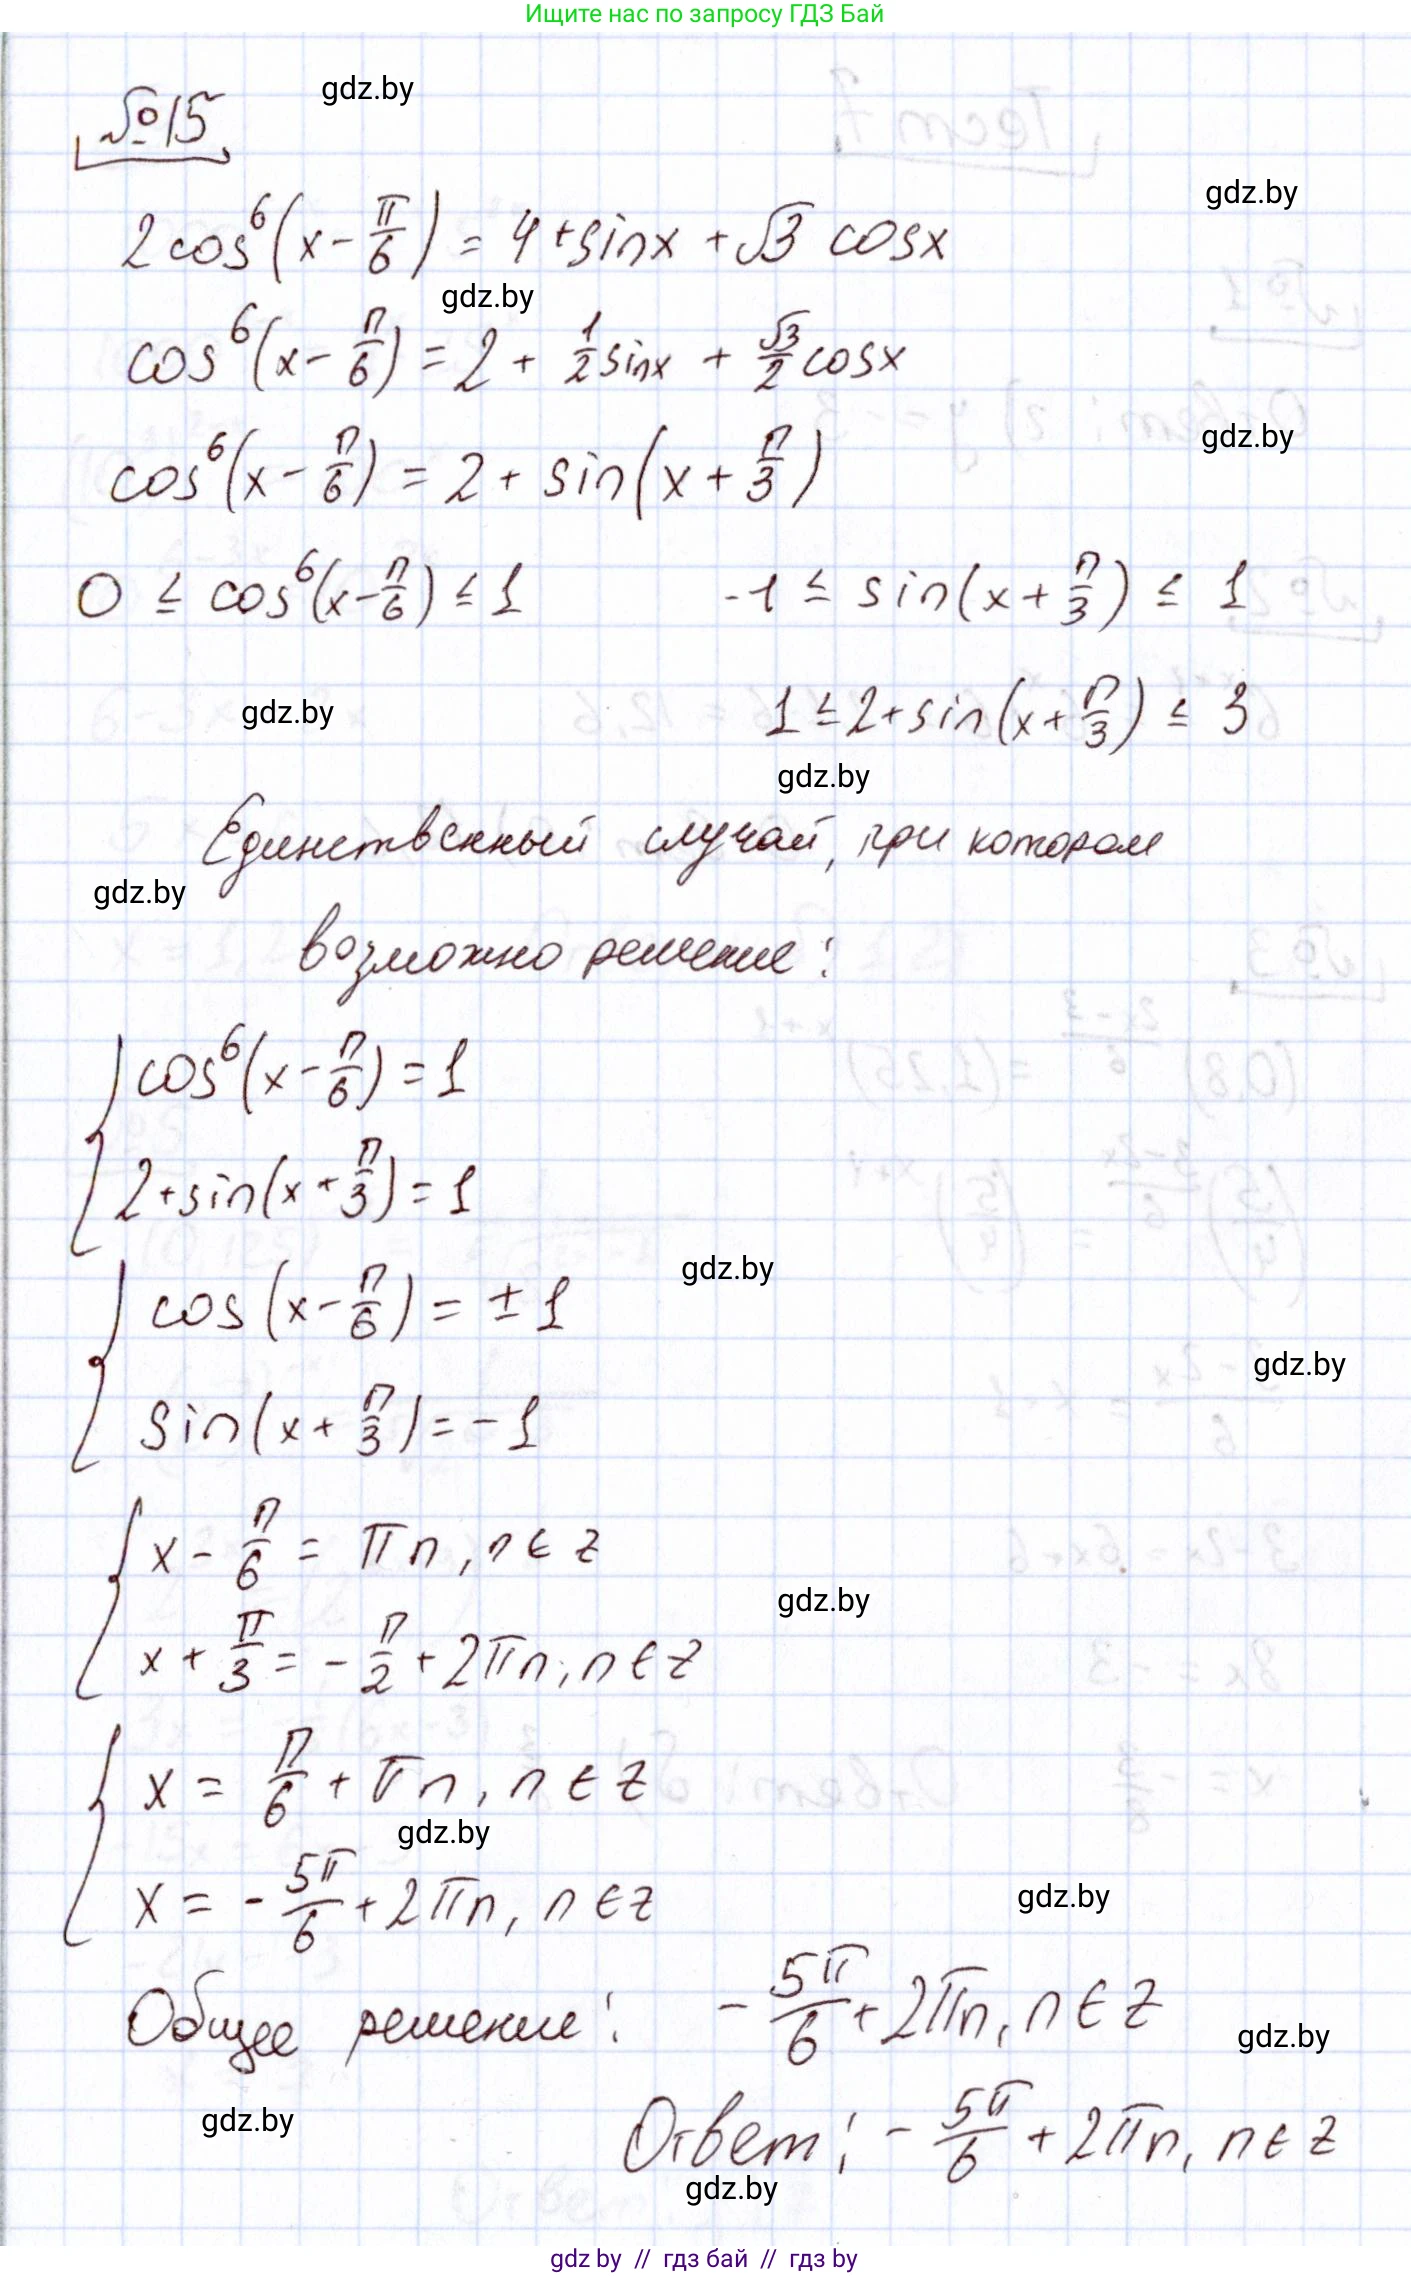 Ищите нас по запросу ГДЗ Бай
№15
gdz.by
gdz.by
2cos⁶(x - π/6) = 4 + sinx + √3 cosx
gdz.by
cos⁶(x - π/6) = 2 + 1/2 sinx + √3/2 cosx
gdz.by
cos⁶(x - π/6) = 2 + sin(x + π/3)
0 ≤ cos⁶(x - π/6) ≤ 1 -1 ≤ sin(x + π/3) ≤ 1
gdz.by
1 ≤ 2 + sin(x + π/3) ≤ 3
gdz.by
Единственный случай, при котором
gdz.by
возможно решение:
{ cos⁶(x - π/6) = 1
2 + sin(x + π/3) = 1
gdz.by
{ cos(x - π/6) = ± 1
gdz.by
sin(x + π/3) = -1
{ x - π/6 = πn, n ∈ z
gdz.by
x + π/3 = - π/2 + 2πn, n ∈ z
{ x = π/6 + πn, n ∈ z
gdz.by
x = - 5π/6 + 2πn, n ∈ z
gdz.by
Общее решение: - 5π/6 + 2πn, n ∈ z
gdz.by
gdz.by
Ответ: - 5π/6 + 2πn, n ∈ z
gdz.by
gdz by // гдз бай // гдз by